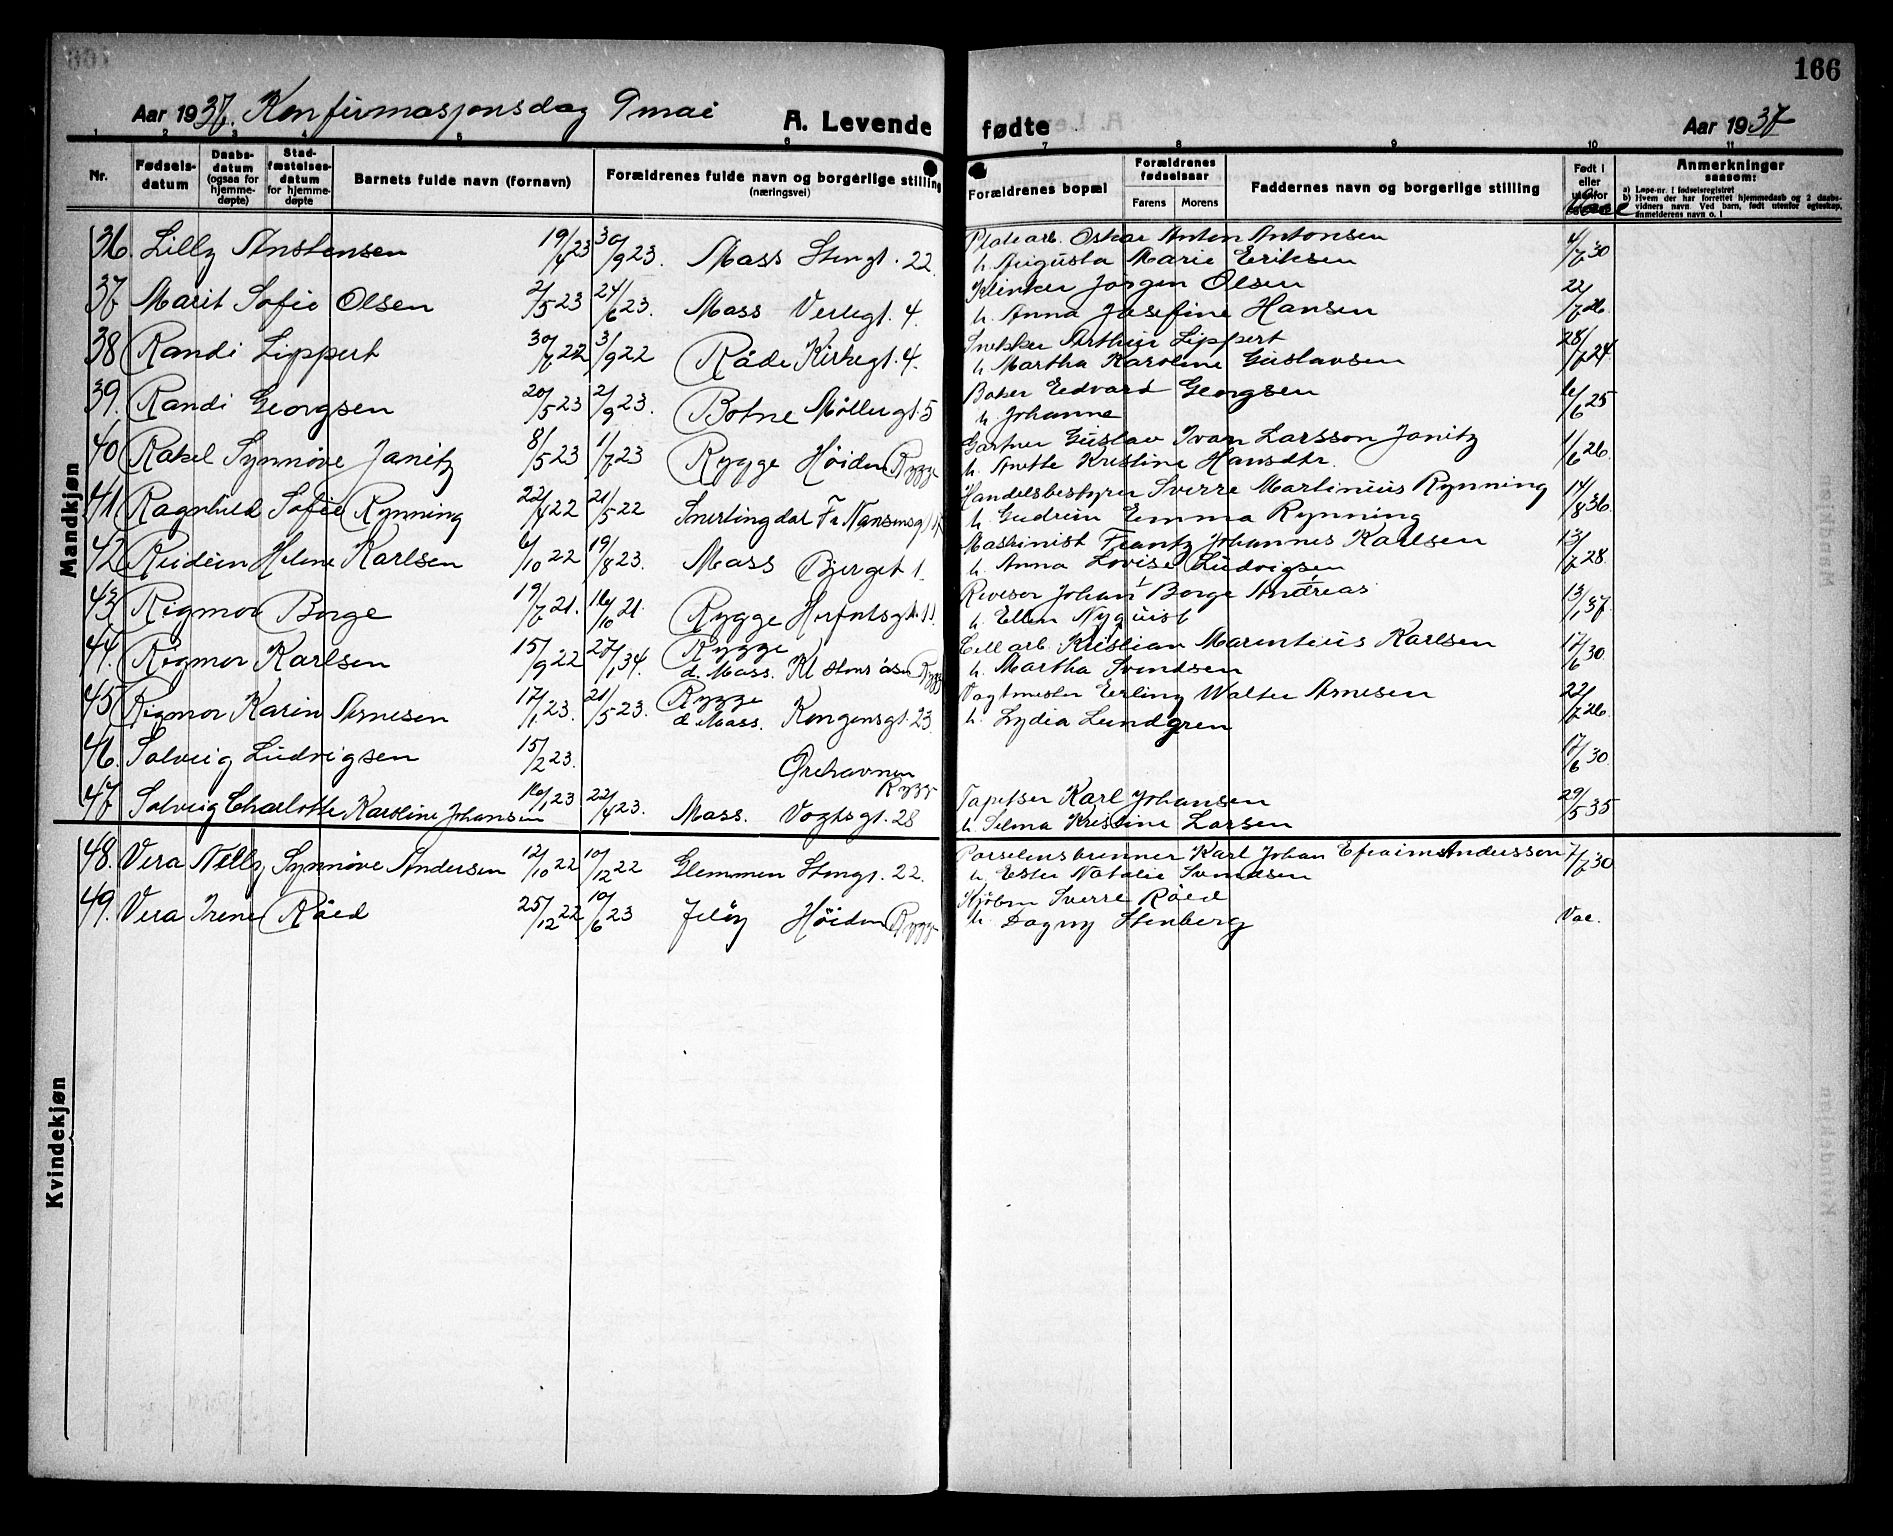 166
Aar 1937. Konfirmasjonsdag 9 mai A. Levende fødte Aar 1937
1 2 3 4 5 6 7 8 9 10 11
Nr. Fødsels-datum Daabs-datum (ogsaa for hjemme-døpte) Stad-fæstelses-datum for hjemme-døpte Barnets fulde navn (fornavn) Forældrenes fulde navn og borgerlige stilling (næringsvei) Forældrenes bopæl Forældrenes fødselsaar Farens Morens Faddernes navn og borgerlige stilling Født i eller utenfor Anmerkninger saasom:
a) Løpe-nr. i fødselsregistret
b) Hvem der har forrettet hjemmedaab og 2 daabs-vidners navn. Ved barn, født utenfor egteskap, anmelderens navn o. l.
Mandkjøn
36. Lilly Anstensen 19/4 23 30/9 23. Moss Stengt. 22. Platearb. Oskar Anton Antonsen 4/7 30
h. Augusta Marie Eriksen
37 Marit Sofie Olsen 2/5 23 24/6 23. Moss Verlegt. 4. Klinker Jørgen Olsen 22/7 26.
h. Anna Josefine Hansen
38 Randi Lippert 30/7 22 3/9 22 Råde Kirkegt. 4. Snekker Arthur Lippert 28/7 24
h. Martha Karoline Gustavsen
39. Randi Georgsen 20/5 23 2/9 23. Botne Møllergt. 5 Baker Edvard Georgsen 6/6 25
h. Johanne
40 Rakel Synnøve Janitz 8/5 23 1/7 23 Rygge Høiden Rygge Gartner Gustav Ivan Larsson Janitz 1/6 26.
h. Anette Kristine Hansdtr.
41 Ragnhild Sofie Rynning 22/4 22 21/5 22 Snertingdal Fr. Nansensgt. 17 Handelsbestyrer Sverre Martinius Rynning 14/8 36.
h. Gudrun Emma Rynning
42 Reidun Helene Karlsen 6/10 22 19/8 23. Moss Bjerget 1. Maskinist Frantz Johannes Karlsen 13/7 28
h. Anna Lovise Ludvigsen
43 Rigmor Borge 19/7 21. 16/10 21. Rygge Revisor Johan Borge Andreas 13/1 37.
h. Ellen Nyquist
44. Rigmor Karlsen 15/9 22 27/1 34. Rygge Cell arb. Kristian Marentius Karlsen 17/6 30.
d. Moss. Rygge h. Martha Svendsen
45 Rigmor Karin Arnesen 17/1 23. 21/5 23. Rygge Vagtmester Erling Walter Arnesen 22/7 26
d. Moss. Kongensgt. 23 h. Lydia Lundgren
46. Solveig Ludvigsen 15/2 23. Ørehavnen Rygge 17/6 30.
47 Solveig Charlotte Karoline Johansen 16/1 23 22/4 23. Moss. Vogtsgt. 28 Tapetser Karl Johansen 29/5 35
h. Selma Kristine Larsen
48. Vera Nelly Synnøve Andersen 12/10 22 10/12 22 Glemmen Stengt. 22. Porselensbrenner Karl Johan Efraim Andersson 7/7 30
h. Ester Natalie Svendsen
49. Vera Irene Røed 25/12 22 10/6 23 Jeløy Høiden Rygge Sverre Røed Vac.
h. Dagny Stenberg
Kvindekjøn